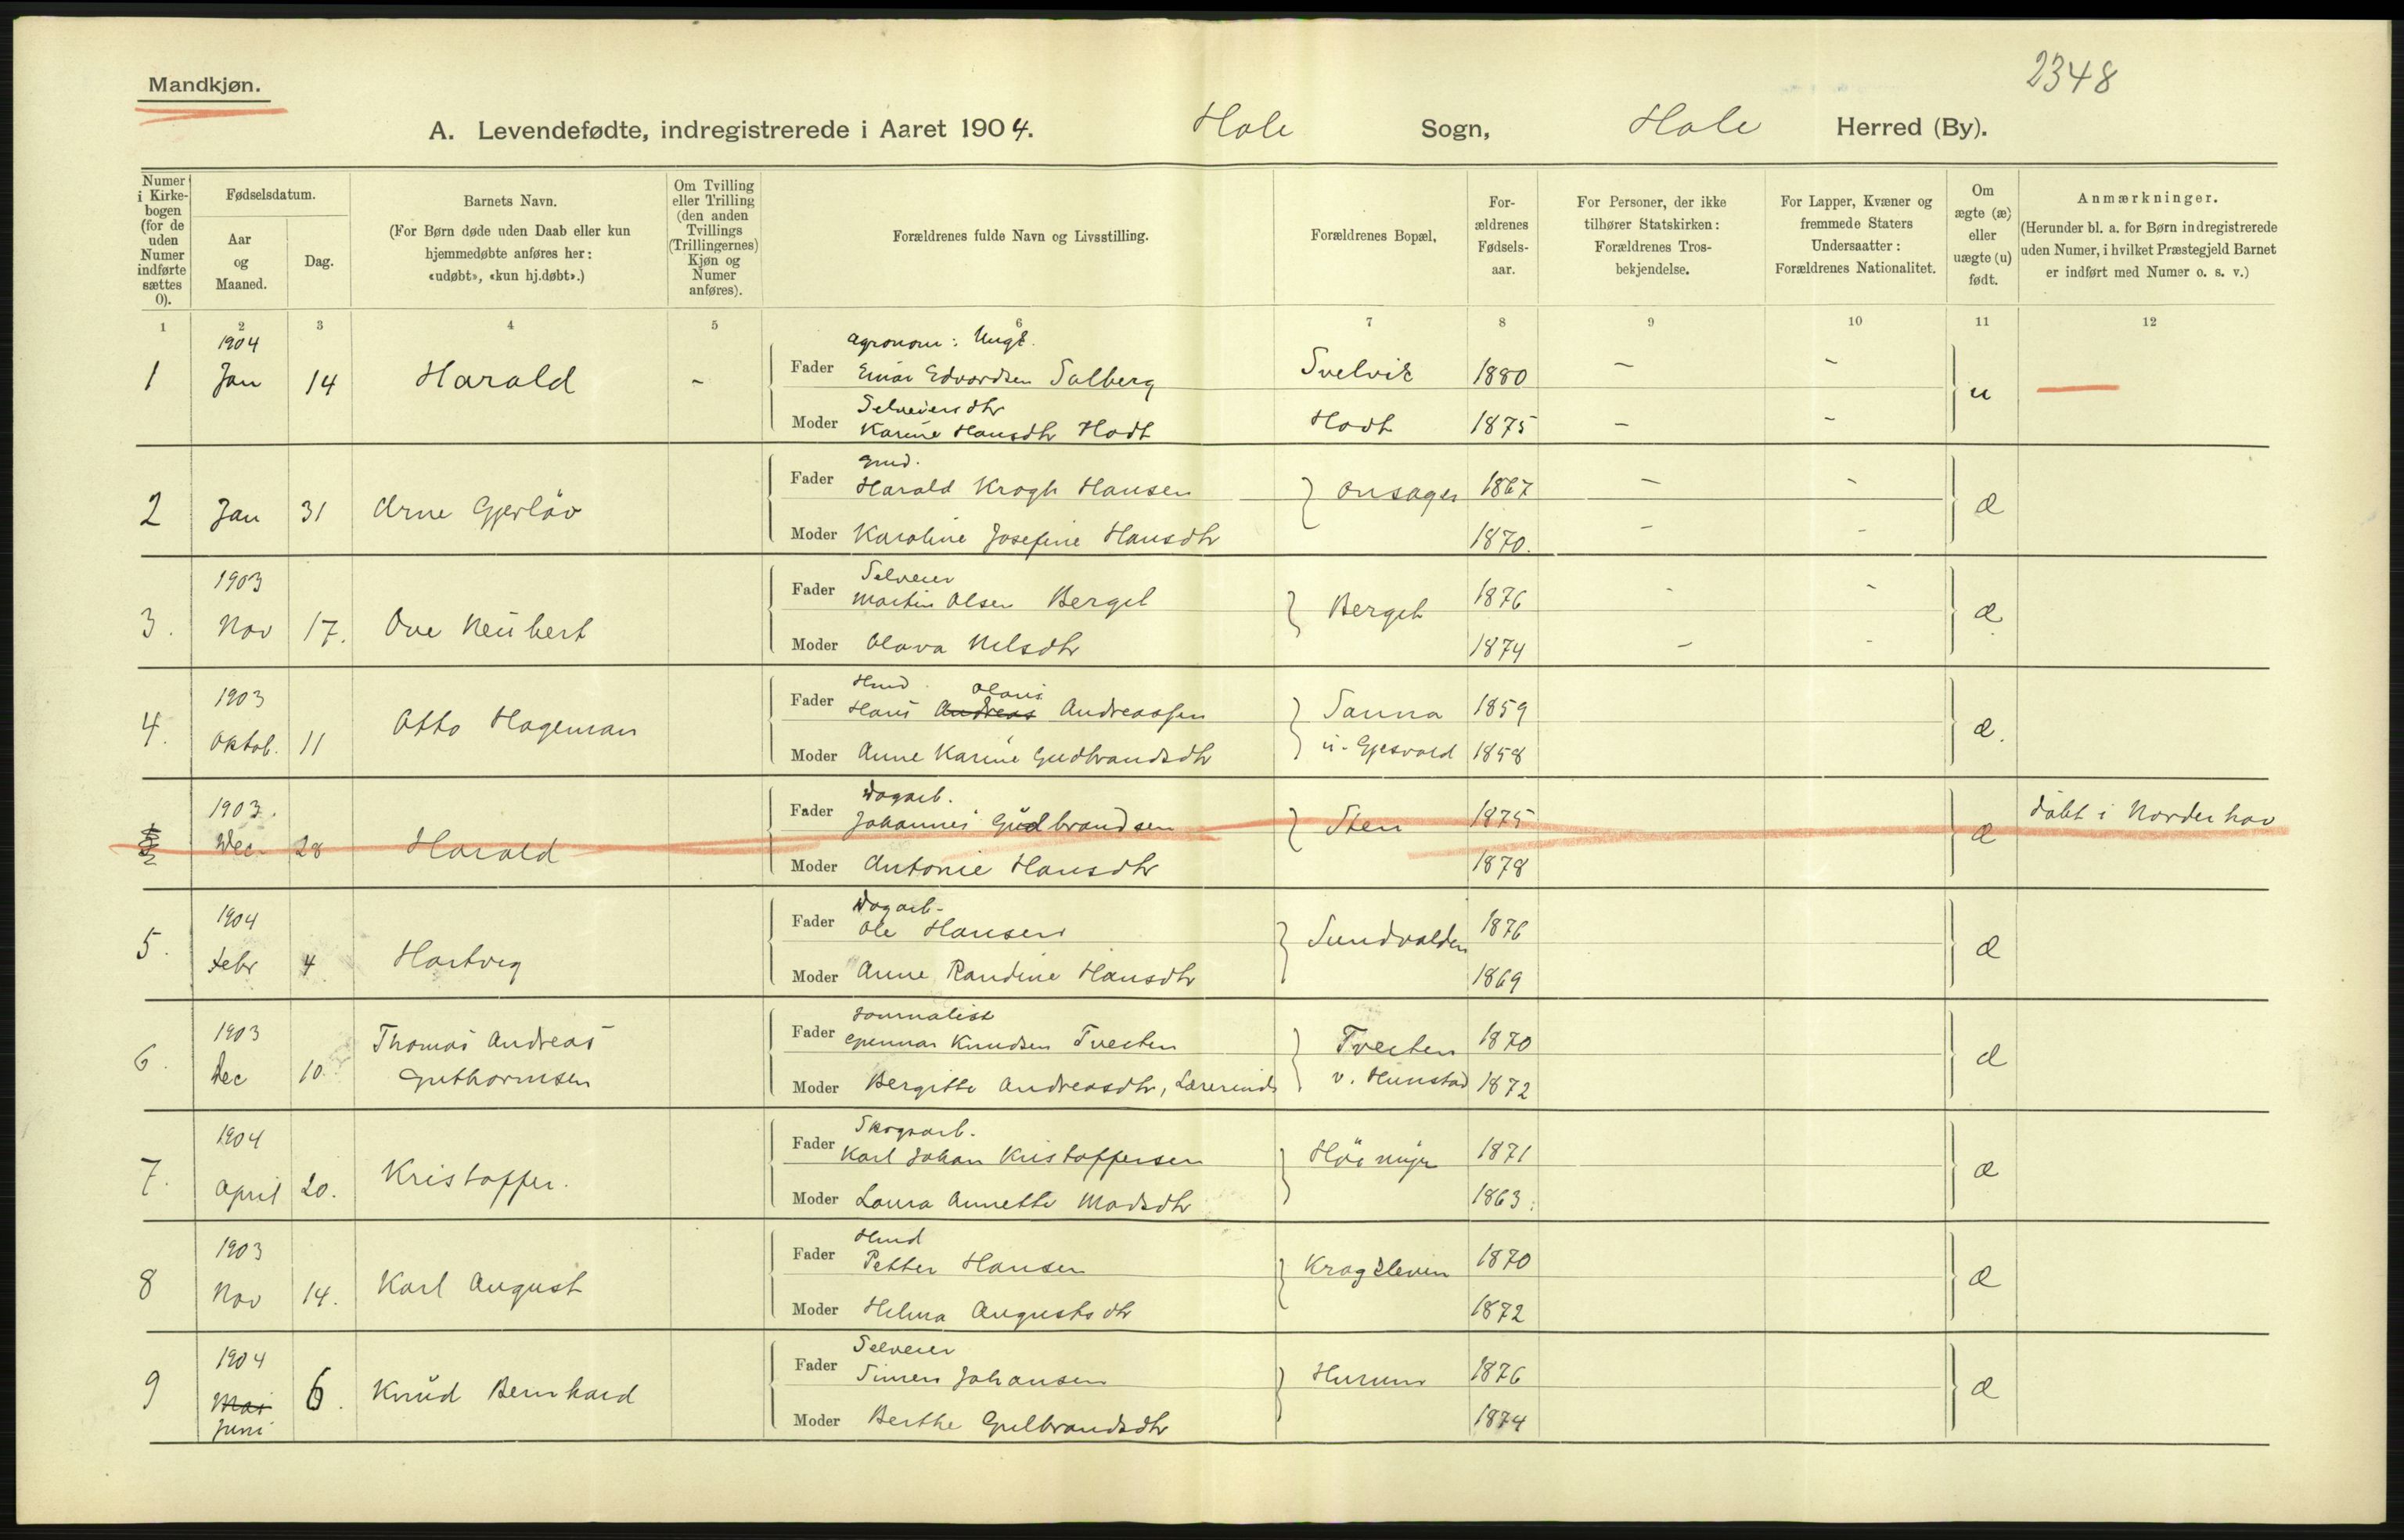 2348
Mandkjøn.
A. Levendefødte, indregistrerede i Aaret 1904. Hole Sogn, Hole Herred (By).
Numer i Kirke-bogen (for de uden Numer indførte sættes 0).
Fødselsdatum.
Aar og Maaned.
Dag.
Barnets Navn.
(For Børn døde uden Daab eller kun
hjemmedøbte anføres her:
«udøbt», «kun hj.døbt».)
Om Tvilling eller Trilling (den anden Tvillings (Trillingernes) Kjøn og Numer anføres).
Forældrenes fulde Navn og Livsstilling.
Forældrenes Bopæl,
For-ældrenes Fødsels-aar.
For Personer, der ikke tilhører Statskirken: Forældrenes Tros-bekjendelse.
For Lapper, Kvæner og fremmede Staters Undersaatter: Forældrenes Nationalitet.
Om ægte (æ) eller uægte (u) født.
Anmærkninger.
(Herunder bl. a. for Børn indregistrerede
uden Numer, i hvilket Præstegjeld Barnet
er indført med Numer o. s. v.)
1 2 3 4 5 6 7 8 9 10 11 12
1904
Agronom: Ungk.
1 Jan 14 Harald - Fader Einar Edvardsen Solberg Svelvik 1880 - - u
Selveiersdtr
Moder Karine Hansdtr Hodt Hodt 1875 - -
Gmd.
2 Jan 31 Arne Gjerløv Fader Harald Krogh Hansen Onsager 1867 - - æ
Moder Karoline Josefine Hansdtr 1870. - -
1903 Selveier
3. Nov 17. Ove Neubert Fader Martin Olsen Berget Berget 1876 - - æ
Moder Olava Nilsdtr 1874 - -
1903 Hmd. Olaus
4. Oktob. 11 Otto Hageman Fader Hans Andreas Andreassen Sanna 1859 æ.
Moder Anne Karine Gudbrandsdtr u. Gjesvold 1858
1903. Dagarb.
Dec 28 Harald Fader Johannes Gudbrandsen Sten 1875 æ døbt i Norderhov
Moder Antonie Hansdtr 1878
1904 Dagarb.
5. Febr 4 Hartvig Fader Ole Hansen Sundvolden 1876 æ
Moder Anne Randine Hansdtr 1869
1903 Journalist
6. Dec 10. Thomas Andreas Guthormsen Fader Gunnar Knudsen Tveiten Tveiten 1870 æ
Moder Bergitte Andreasdtr, Lærerinde v. Hunstad 1872
1904 Skogsarb.
7. April 20. Kristoffer. Fader Karl Johan Kristoffersen 1871 æ
Moder Laura Annette Madsdtr 1863.
1903 Hmd
8 Nov 14. Karl August Fader Petter Hansen Kragsleven 1870 æ
Moder Helma Augustsdtr 1872
1904 Selveier
9 Mai 6. Knud Bernhard Fader Simen Johansen Hurum 1876 æ
Juni
Moder Berthe Gulbrandsdtr 1874